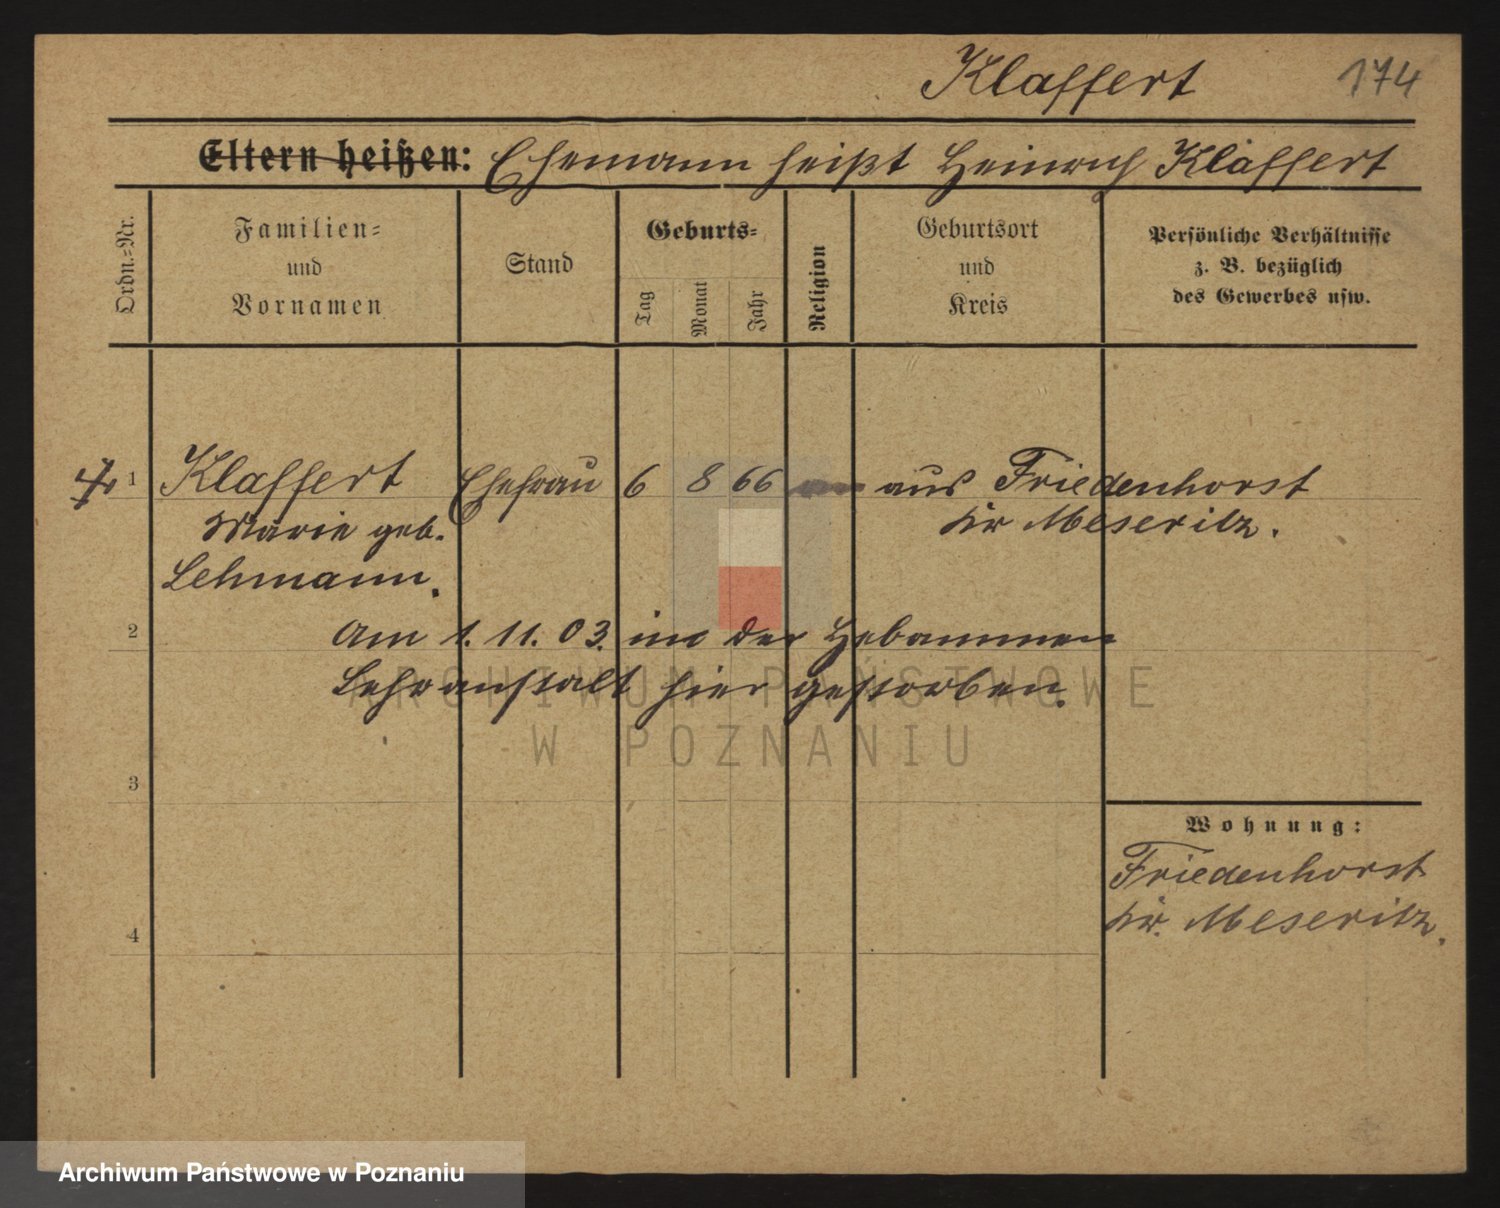 Klaffert 174
Eltern heißen: Ehemann heißt Heinrich Klaffert
Ordn.-Nr.
Familien-
und
Vornamen
Stand
Geburts-
Tag
Monat
Jahr
Religion
Geburtsort
und
Kreis
Persönliche Verhältnisse
z. B. bezüglich
des Gewerbes usw.
1 Klaffert Ehefrau 6 8 66 aus Friedenhorst
Marie geb. Kr Meseritz.
Lehmann.
2 Am 1. 11. 03. in der Hebammen
Lehranstalt hier gestorben.
ARCHIWUM PAŃSTWOWE
W POZNANIU
3
Wohnung:
Friedenhorst
Kr. Meseritz.
4
Archiwum Państwowe w Poznaniu